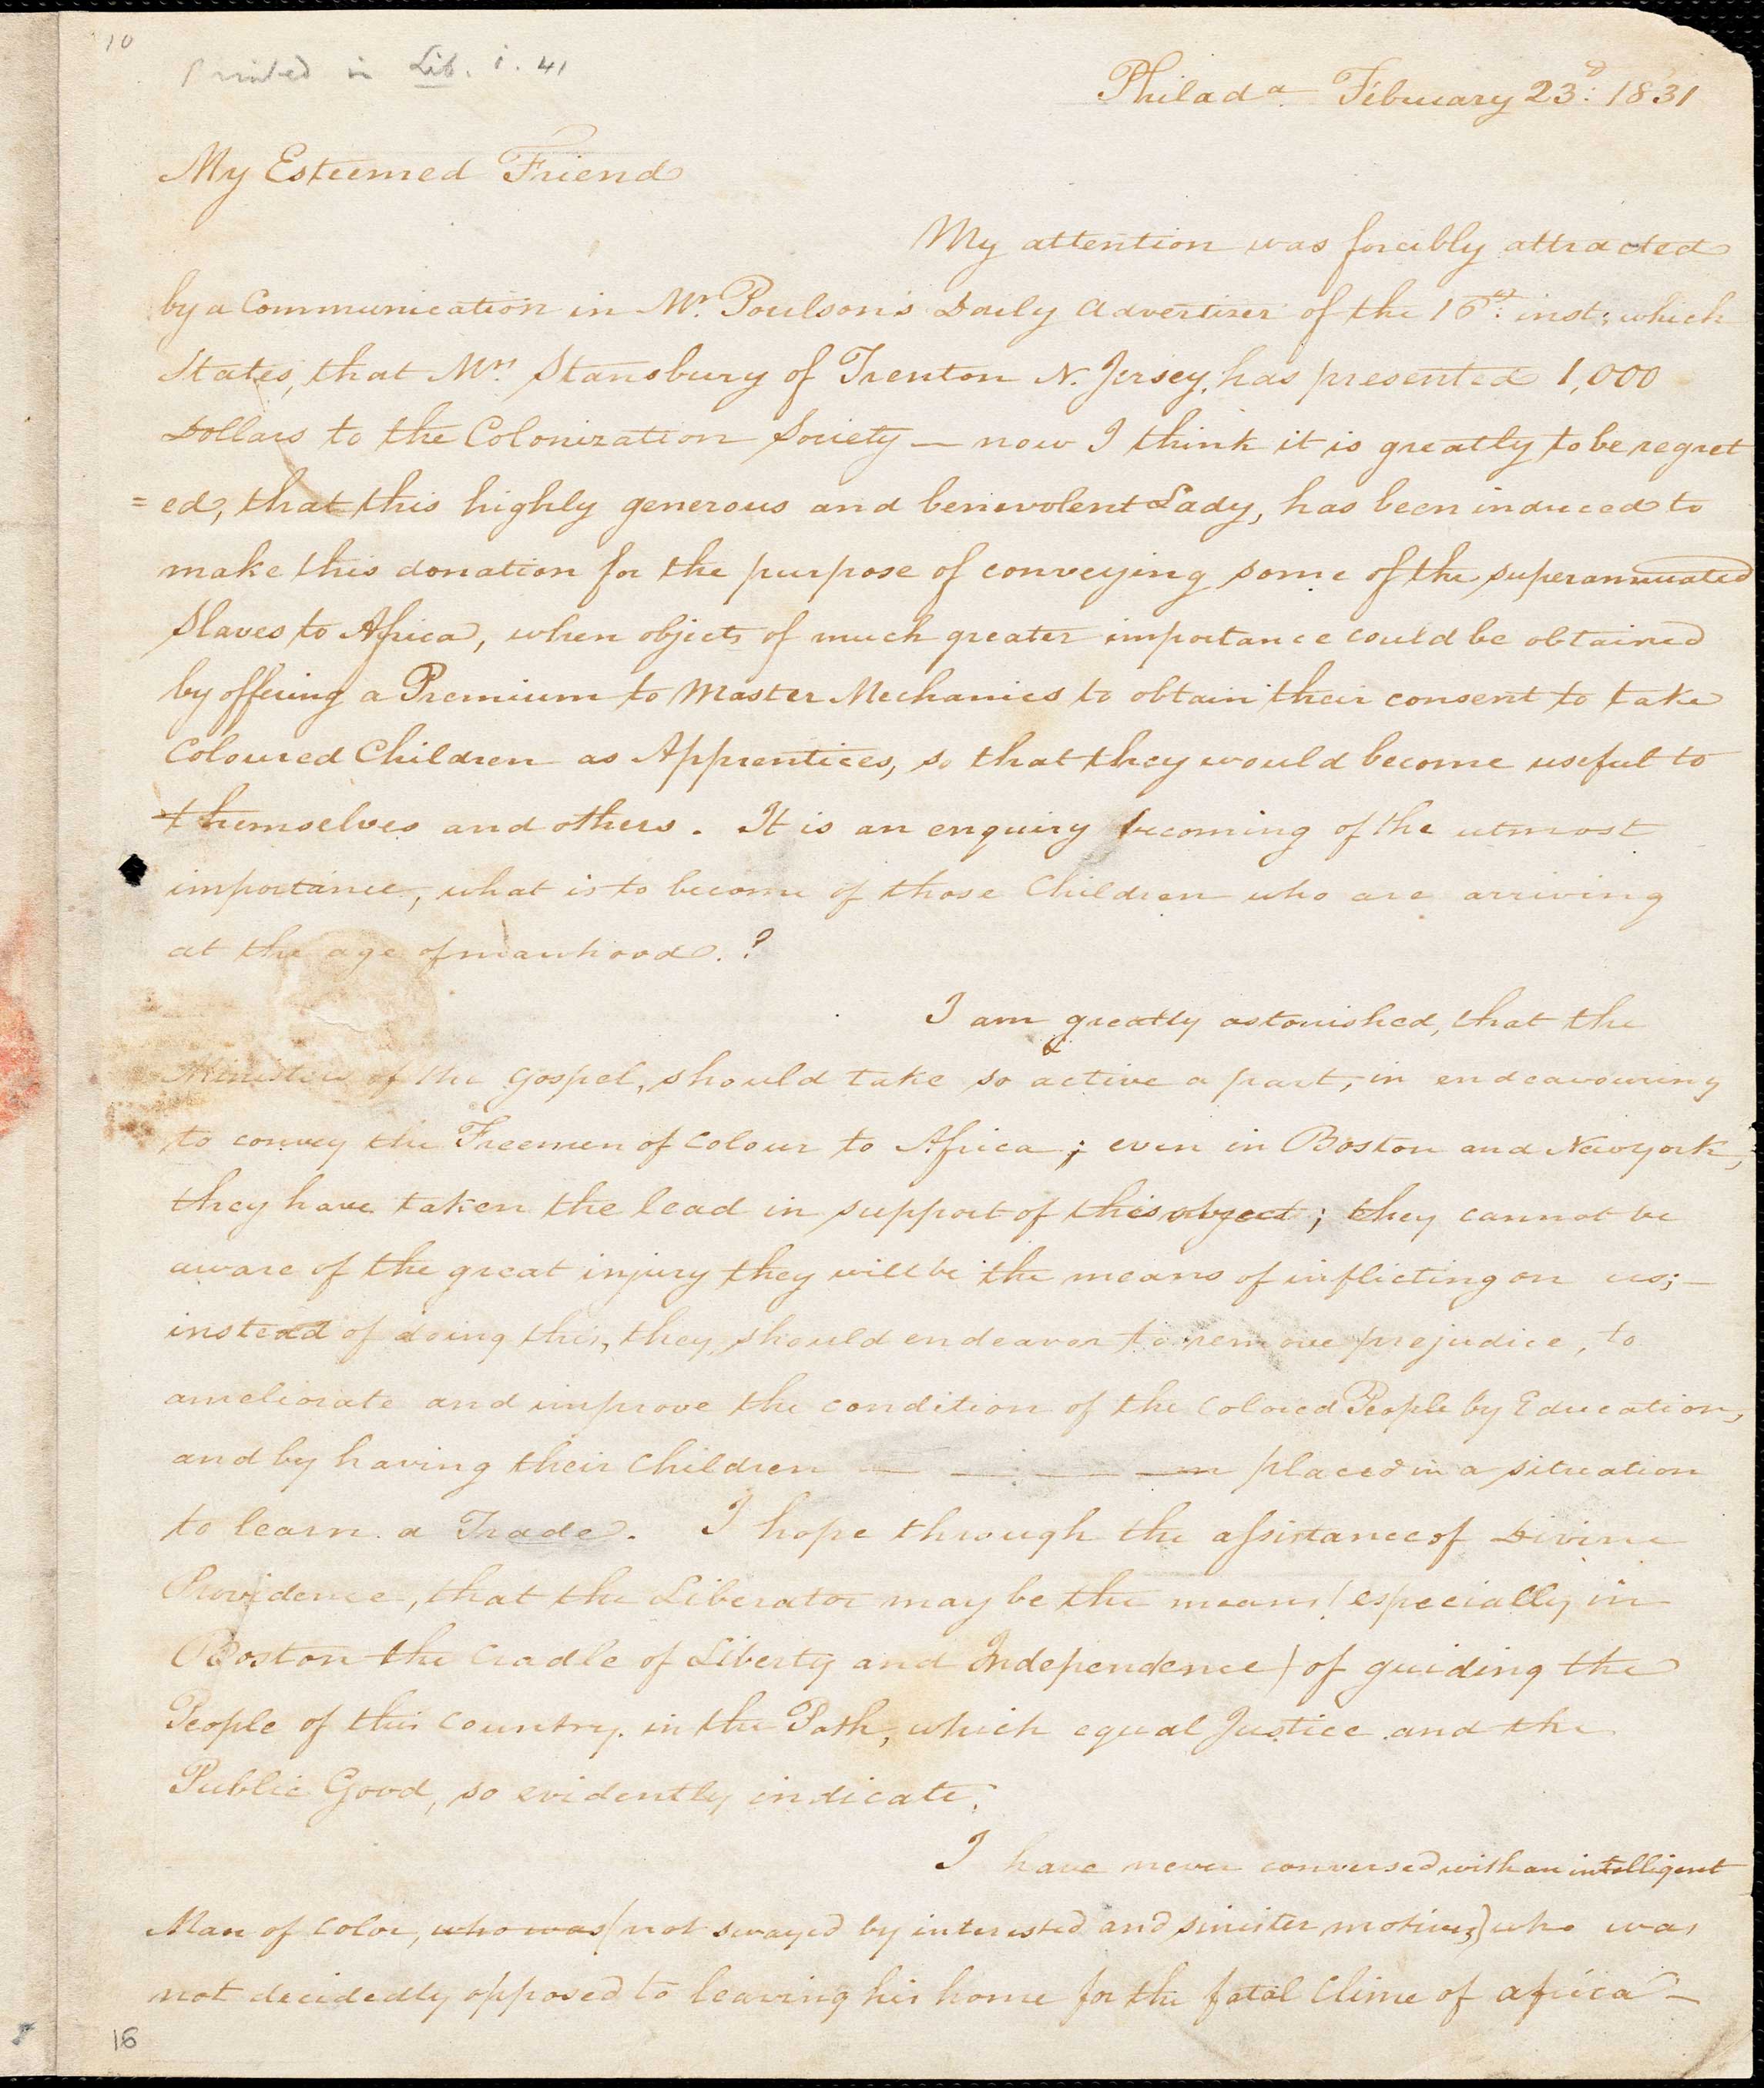 10
Printed in Lib. i. 41
Philada February 23d: 1831
My Esteemed Friend
My attention was forcibly attracted
by a Communication in Mr. Poulson's Daily Advertiser of the 16d: inst: which
States, that Mrs. Stansbury of Trenton N. Jersey, has presented 1,000
Dollars to the Colonization Society — now I think it is greatly to be regret
=ed, that this highly generous and benevolent Lady, has been induced to
make this donation for the purpose of conveying some of the superannuated
Slaves to Africa, when objects of much greater importance could be obtained
by offering a Premium to Master Mechanics to obtain their consent to take
Coloured Children as Apprentices, so that they would become useful to
themselves and others. It is an enquiry becoming of the utmost
importance, what is to become of those Children who are arriving
at the age of manhood.?
I am greatly astonished, that the
Ministers of the Gospel, should take so active a part, in endeavouring
to convey the Freemen of Colour to Africa; even in Boston and New york,
they have taken the lead in support of this object; they cannot be
aware of the great injury they will be the means of inflicting on us;—
instead of doing this, they should endeavor to remove prejudice, to
ameliorate and improve the condition of the Colored People by Education,
and by having their Children — — — — placed in a situation
to learn a Trade. I hope through the assistance of Divine
Providence, that the Liberator may be the means (especially in
Boston the Cradle of Liberty and Independence) of guiding the
People of this Country in the Path, which equal Justice and the
Public Good, so evidently indicate.
I have never conversed with an intelligent
Man of Color, who was (not swayed by interested and sinister motives) who was
not decidedly opposed to leaving his home for the fatal Clime of africa —
16